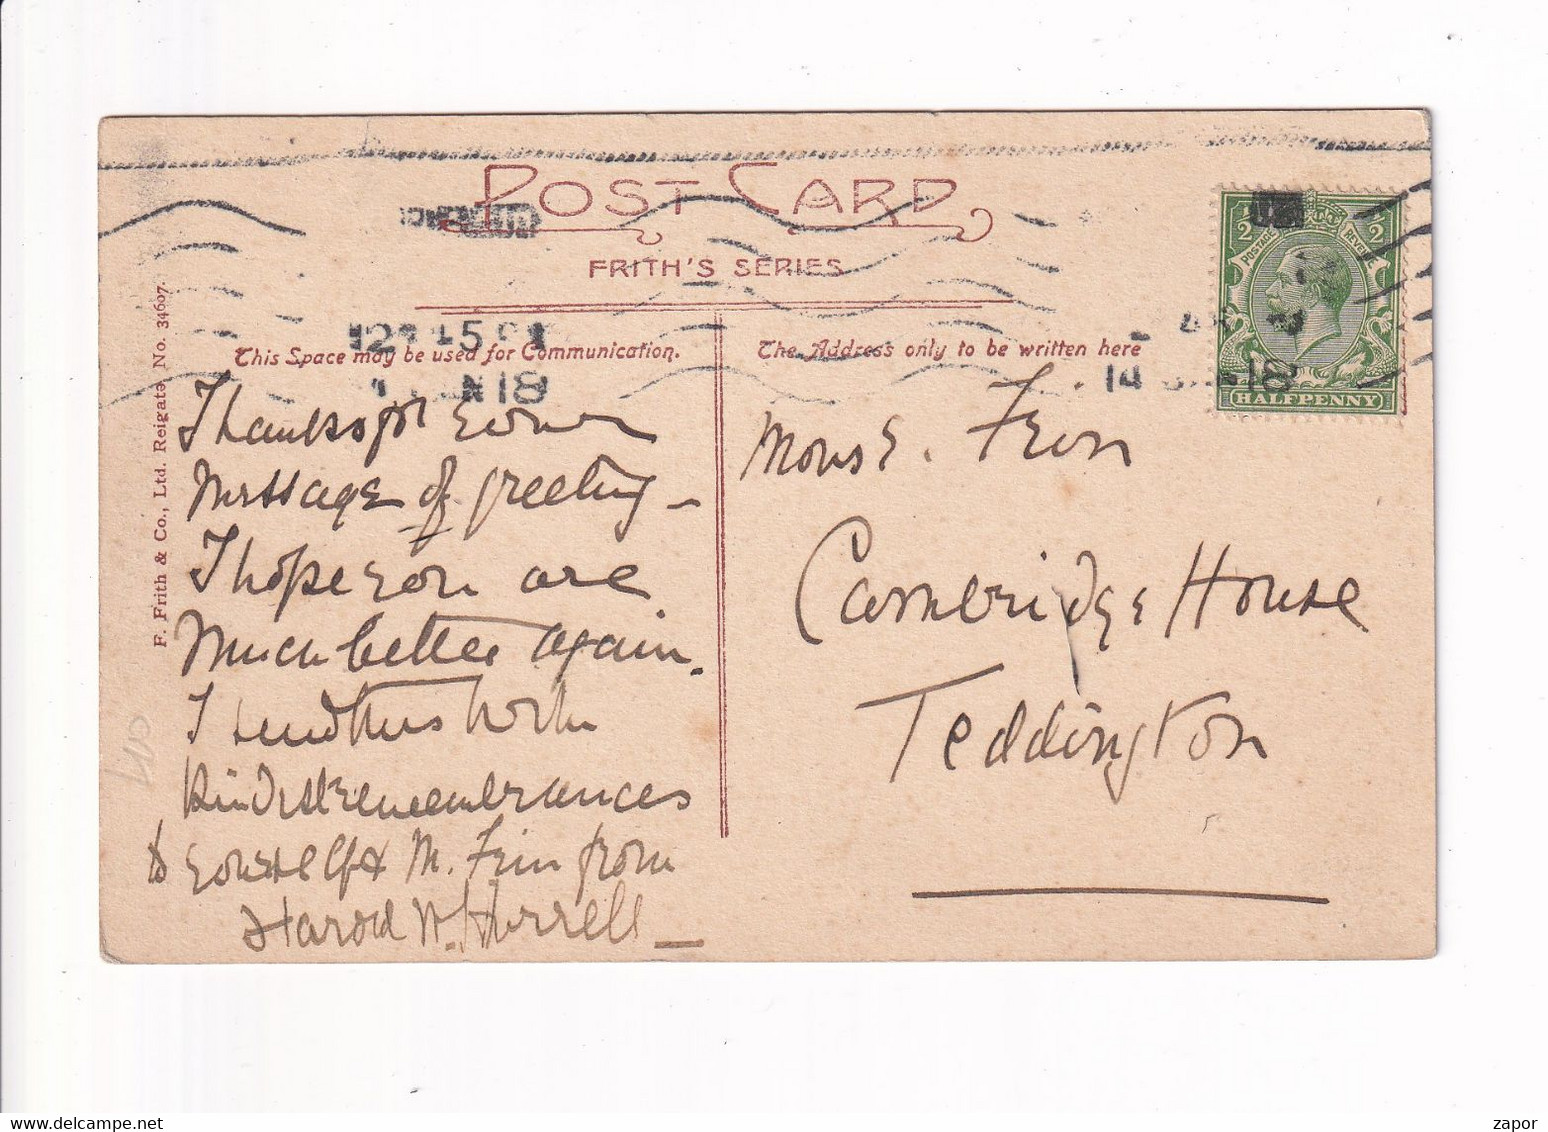 POST CARD
FRITH'S SERIES
This Space may be used for Communication.
The Address only to be written here
F. Frith & Co., Ltd. Reigate. No. 34607.
½ ½
POSTAGE REVENUE
HALFPENNY
12 45 PM
JUN 18
14 18
Thanks for your
message of greeting –
I hope you are
much better again.
I send this with
kindest remembrances
to yourself & M. Frin from
Harold W. Hurrell
Mons E. Frin
Cambridge House
Teddington
delcampe.net
zapor